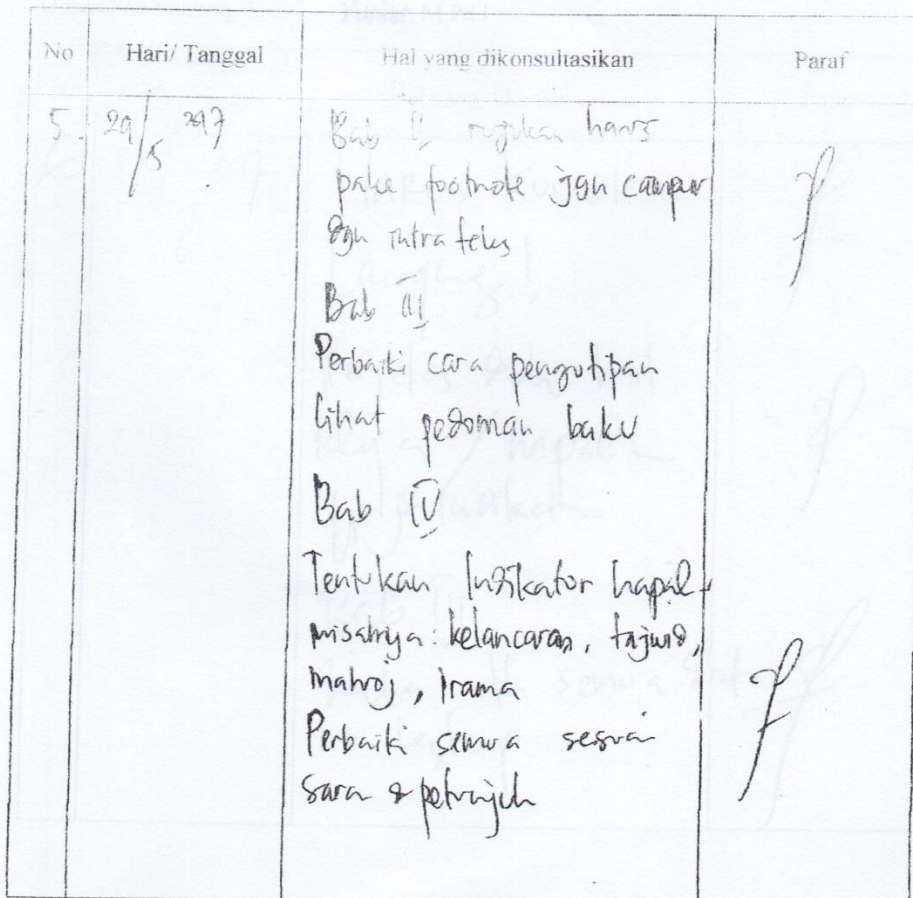 No Hari/ Tanggal Hal yang dikonsultasikan Paraf
5. 29/5 2017 Bab II rujukan harus
pake footnote jgn campur
dgn intra teks
Bab III
Perbaiki cara pengutipan
lihat pedoman baku
Bab IV
Tentukan Indikator hapal
misalnya: kelancaran, tajwid,
mahroj, irama
Perbaiki semua sesuai
saran & petunjuk